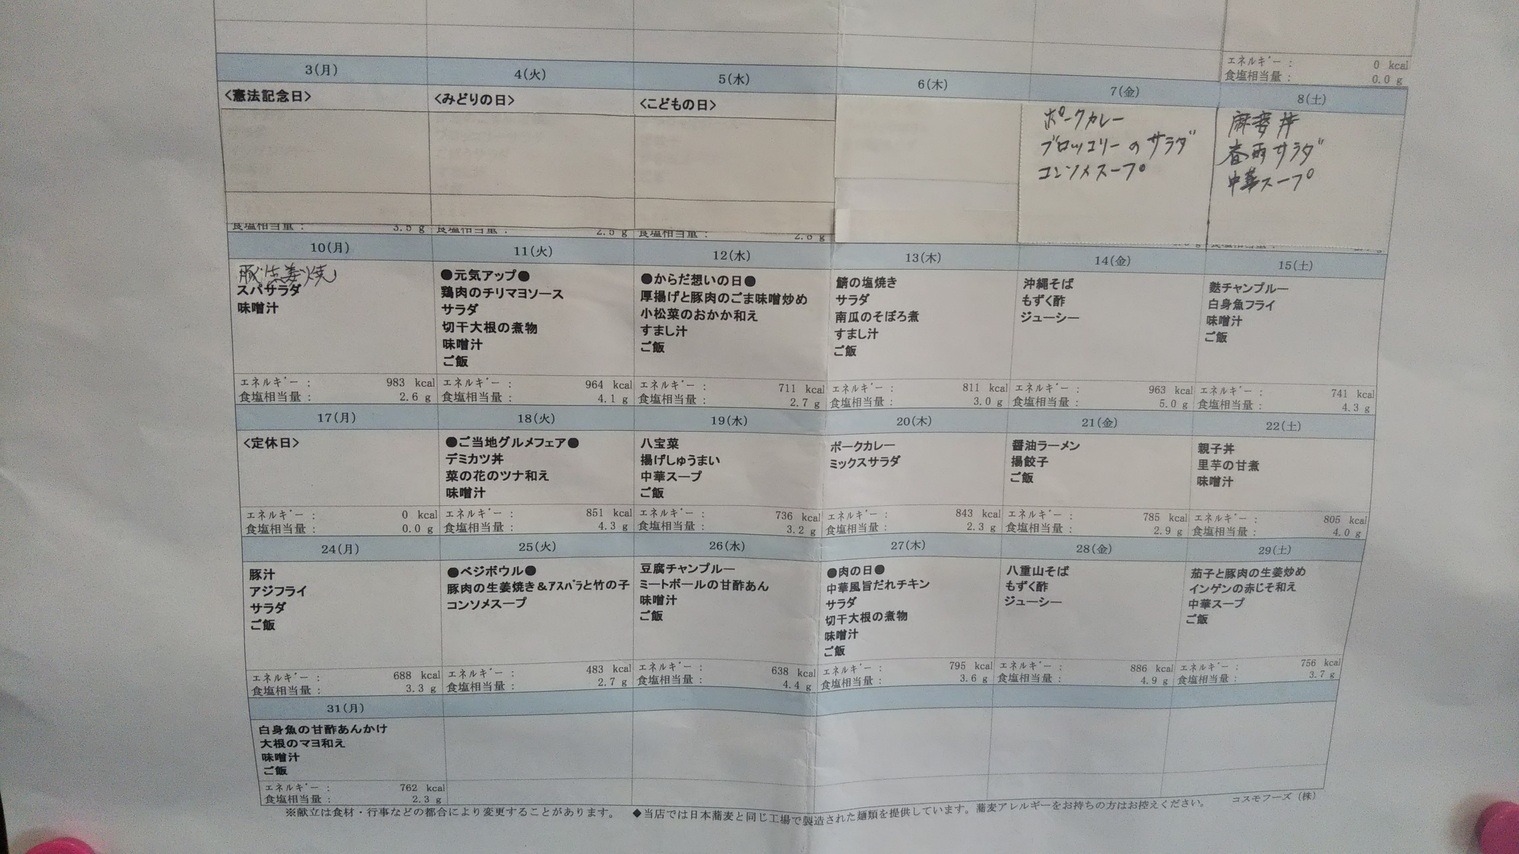 エネルギー： 0 kcal
食塩相当量： 0.0 g
3(月) 4(火) 5(水) 6(木) 7(金) 8(土)
<憲法記念日> <みどりの日> <こどもの日>
ポークカレー
ブロッコリーのサラダ
コンソメスープ
麻婆丼
春雨サラダ
中華スープ
食塩相当量： 3.5 g 食塩相当量： 2.8 g 食塩相当量： 2.8 g
10(月) 11(火) 12(水) 13(木) 14(金) 15(土)
豚生姜焼
スパサラダ
味噌汁
●元気アップ●
鶏肉のチリマヨソース
サラダ
切干大根の煮物
味噌汁
ご飯
●からだ想いの日●
厚揚げと豚肉のごま味噌炒め
小松菜のおかか和え
すまし汁
ご飯
鯖の塩焼き
サラダ
南瓜のそぼろ煮
すまし汁
ご飯
沖縄そば
もずく酢
ジューシー
麩チャンプルー
白身魚フライ
味噌汁
ご飯
エネルギー： 983 kcal エネルギー： 964 kcal エネルギー： 711 kcal エネルギー： 811 kcal エネルギー： 963 kcal エネルギー： 741 kcal
食塩相当量： 2.6 g 食塩相当量： 4.1 g 食塩相当量： 2.7 g 食塩相当量： 3.0 g 食塩相当量： 5.0 g 食塩相当量： 4.3 g
17(月) 18(火) 19(水) 20(木) 21(金) 22(土)
<定休日>
●ご当地グルメフェア●
デミカツ丼
菜の花のツナ和え
味噌汁
八宝菜
揚げしゅうまい
中華スープ
ご飯
ポークカレー
ミックスサラダ
醤油ラーメン
揚餃子
ご飯
親子丼
里芋の甘煮
味噌汁
エネルギー： 0 kcal エネルギー： 851 kcal エネルギー： 736 kcal エネルギー： 843 kcal エネルギー： 785 kcal エネルギー： 805 kcal
食塩相当量： 0.0 g 食塩相当量： 4.3 g 食塩相当量： 3.2 g 食塩相当量： 2.3 g 食塩相当量： 2.9 g 食塩相当量： 4.0 g
24(月) 25(火) 26(水) 27(木) 28(金) 29(土)
豚汁
アジフライ
サラダ
ご飯
●ベジボウル●
豚肉の生姜焼き＆アスパラと竹の子
コンソメスープ
豆腐チャンプルー
ミートボールの甘酢あん
味噌汁
ご飯
●肉の日●
中華風旨だれチキン
サラダ
切干大根の煮物
味噌汁
ご飯
八重山そば
もずく酢
ジューシー
茄子と豚肉の生姜炒め
インゲンの赤じそ和え
中華スープ
ご飯
エネルギー： 688 kcal エネルギー： 483 kcal エネルギー： 638 kcal エネルギー： 795 kcal エネルギー： 886 kcal エネルギー： 756 kcal
食塩相当量： 3.3 g 食塩相当量： 2.7 g 食塩相当量： 4.4 g 食塩相当量： 3.6 g 食塩相当量： 4.9 g 食塩相当量： 3.7 g
31(月)
白身魚の甘酢あんかけ
大根のマヨ和え
味噌汁
ご飯
エネルギー： 762 kcal
食塩相当量： 2.3 g
※献立は食材・行事などの都合により変更することがあります。 ◆当店では日本蕎麦と同じ工場で製造された麺類を提供しています。蕎麦アレルギーをお持ちの方はお控えください。 コスモフーズ（株）